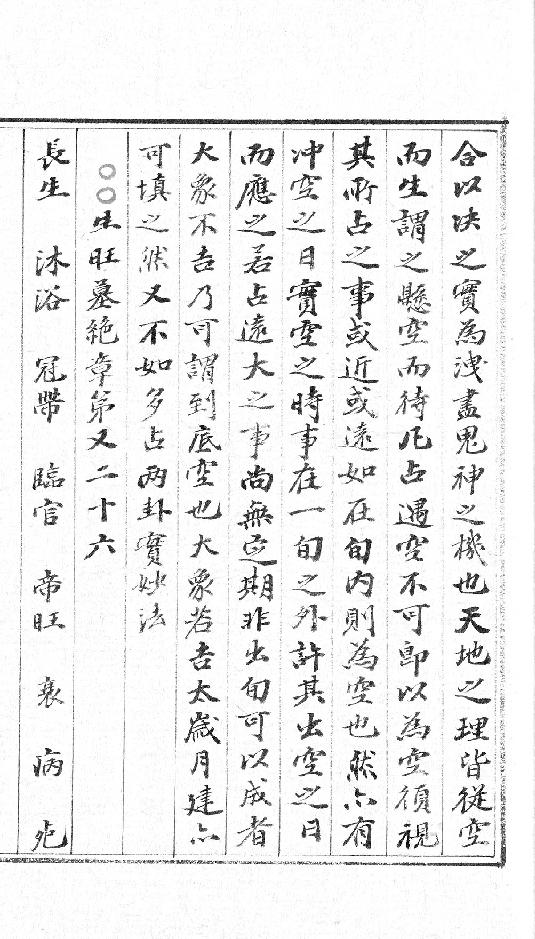 合以决之實為洩盡鬼神之機也天地之理皆從空
而生謂之懸空而待凡占遇空不可即以為空須視
其所占之事或近或遠如在旬内則為空也然亦有
冲空之日實空之時事在一旬之外許其出空之日
而應之若占遠大之事尚無定期非出旬可以成者
大象不吉乃可謂到底空也大象若吉太歲月建亦
可填之然又不如多占两卦實妙法
○○生旺墓絶章第又二十六
長生 沐浴 冠帶 臨官 帝旺 衰 病 死